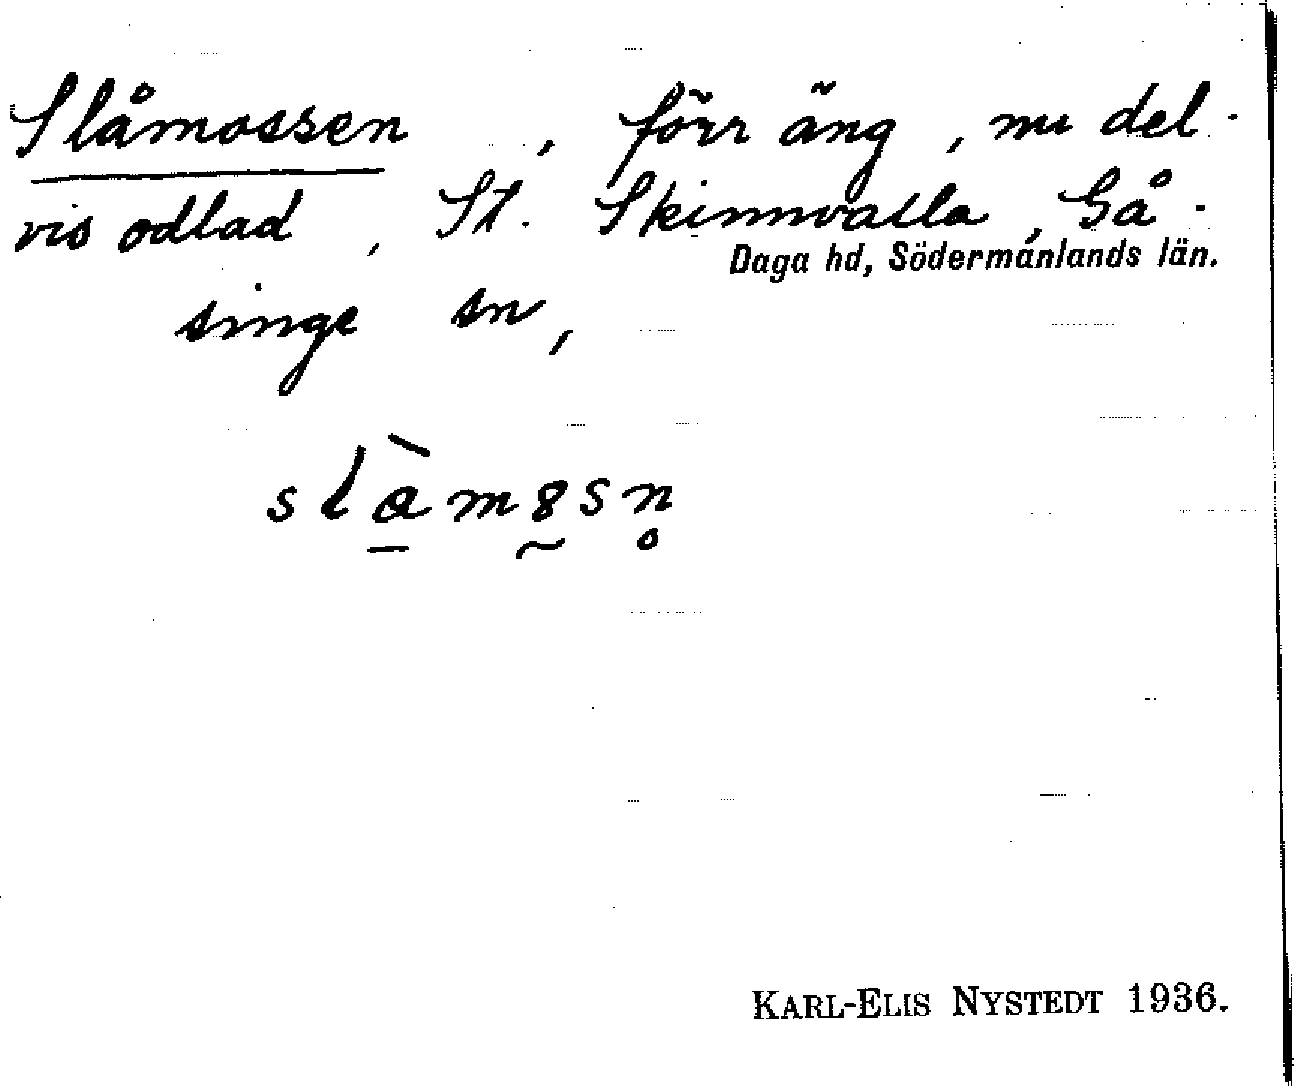 Slåmossen, förr äng, nu del-
vis odlad, St. Skinnvalla, Gå-
Daga hd, Södermanlands län.
singe sn,
slàm8sn̥
KARL-ELIS NYSTEDT 1936.